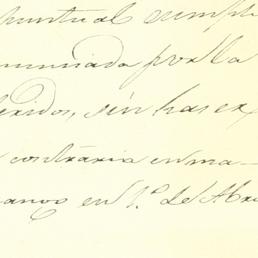 puntual cumpli
nunciada por la
feridos, sin has ex
contraria en ma-
anos en 1.º de Abri